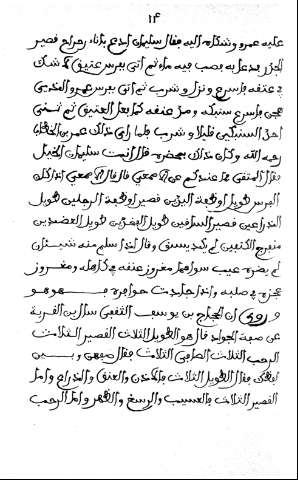 ١٤
عليه عمرو وشكاه اليه فقال سليمان ادع باناء رحراح قصير
الجدر فدعا به فصب فيه ماء ثم اتى بفرس عتيق لا شك
في عتقه فاسرع ونزا وشرب ثم اتى بفرس عمرو
هجين فاسرع سنبكه ومد عنقه كما يفعل العتيق ثم ثنى
احد السنبكين قليلا وشرب فلما راى ذلك عمر بن الخطاب
رحمه الله وكان ذلك بمحضره قال انت سليمان الخيل
فقال فما عندكم عن الاصمعي قال قال الاصمعي اذا كان
الفرس طويل اوظفة اليدين قصير اوظفة الرجلين طويل
الذراعين قصير الساقين طويل الفخذين طويل العضدين
منفرج الكتفين لم يكد يسبق وقال اذا سلم منه شيئان
لم يضره عيب سواهما مغروز عنقه في كاهله ومغروز
عجزه في صلبه واذا جادت حوافره فهو هو
وروي ان الحجاج بن يوسف الثقفي سال بن القرية
عن صفة الجواد قال هو الطويل الثلاث القصير الثلاث
الرحب الثلاث الصافي الثلاث فقال صفهن وبين
لفظك فقال الطويل الثلاث فالاذن والعنق والذراع واما
القصير الثلاث فالعسيب والرسغ والظهر واما الرحب